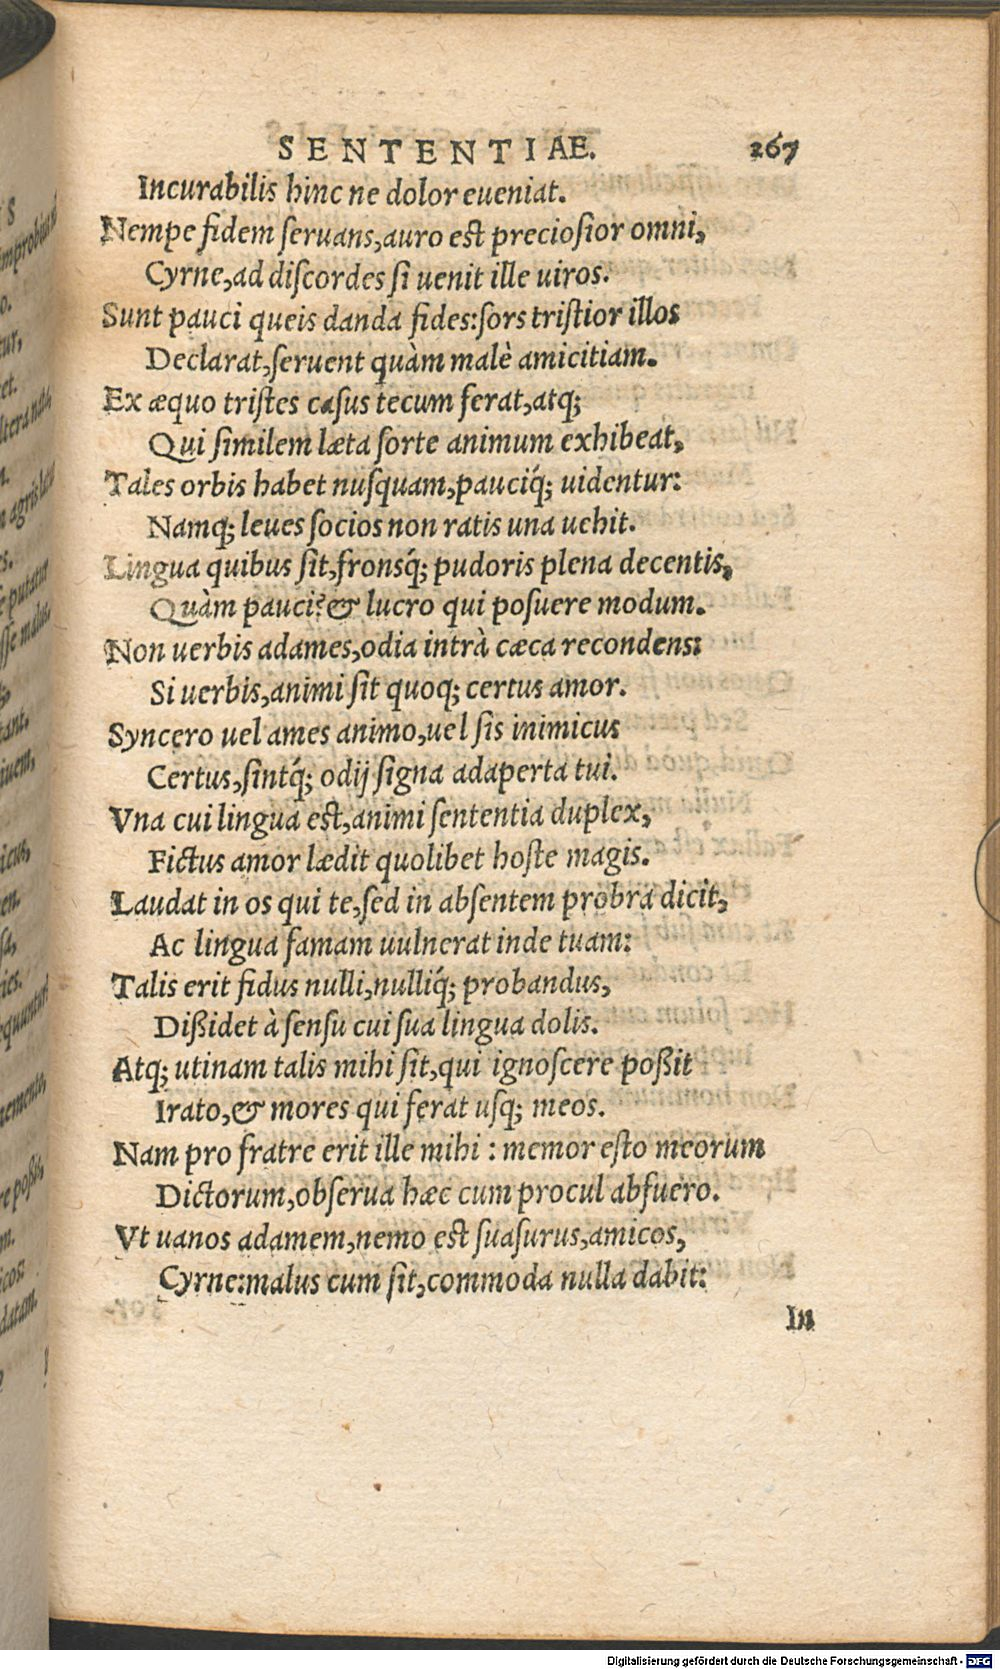 SENTENTIAE. 267
Incurabilis hinc ne dolor eueniat.
Nempe fidem ſeruans, auro est precioſior omni,
Cyrne, ad diſcordes ſi uenit ille uiros.
Sunt pauci queis danda fides: ſors triſtior illos
Declarat, ſeruent quàm malè amicitiam.
Ex æquo triſtes caſus tecum ferat, atq;
Qui ſimilem læta ſorte animum exhibeat,
Tales orbis habet nuſquam, pauciq́; uidentur:
Namq; leues ſocios non ratis una uehit.
Lingua quibus ſit, fronsq́; pudoris plena decentis,
Quàm pauci? & lucro qui poſuere modum.
Non uerbis adames, odia intrà cæca recondens:
Si uerbis, animi ſit quoq; certus amor.
Syncero uel ames animo, uel ſis inimicus
Certus, ſintq́; odij ſigna adaperta tui.
Vna cui lingua est, animi ſententia duplex,
Fictus amor lædit quolibet hoſte magis.
Laudat in os qui te, ſed in abſentem probra dicit,
Ac lingua famam uulnerat inde tuam:
Talis erit fidus nulli, nulliq́; probandus,
Dißidet à ſenſu cui ſua lingua dolis.
Atq; utinam talis mihi ſit, qui ignoſcere poßit
Irato, & mores qui ferat uſq; meos.
Nam pro fratre erit ille mihi : memor eſto meorum
Dictorum, obſerua hæc cum procul abfuero.
Vt uanos adamem, nemo est ſuaſurus, amicos,
Cyrne: malus cum ſit, commoda nulla dabit:
In
Digitalisierung gefördert durch die Deutsche Forschungsgemeinschaft - DFG